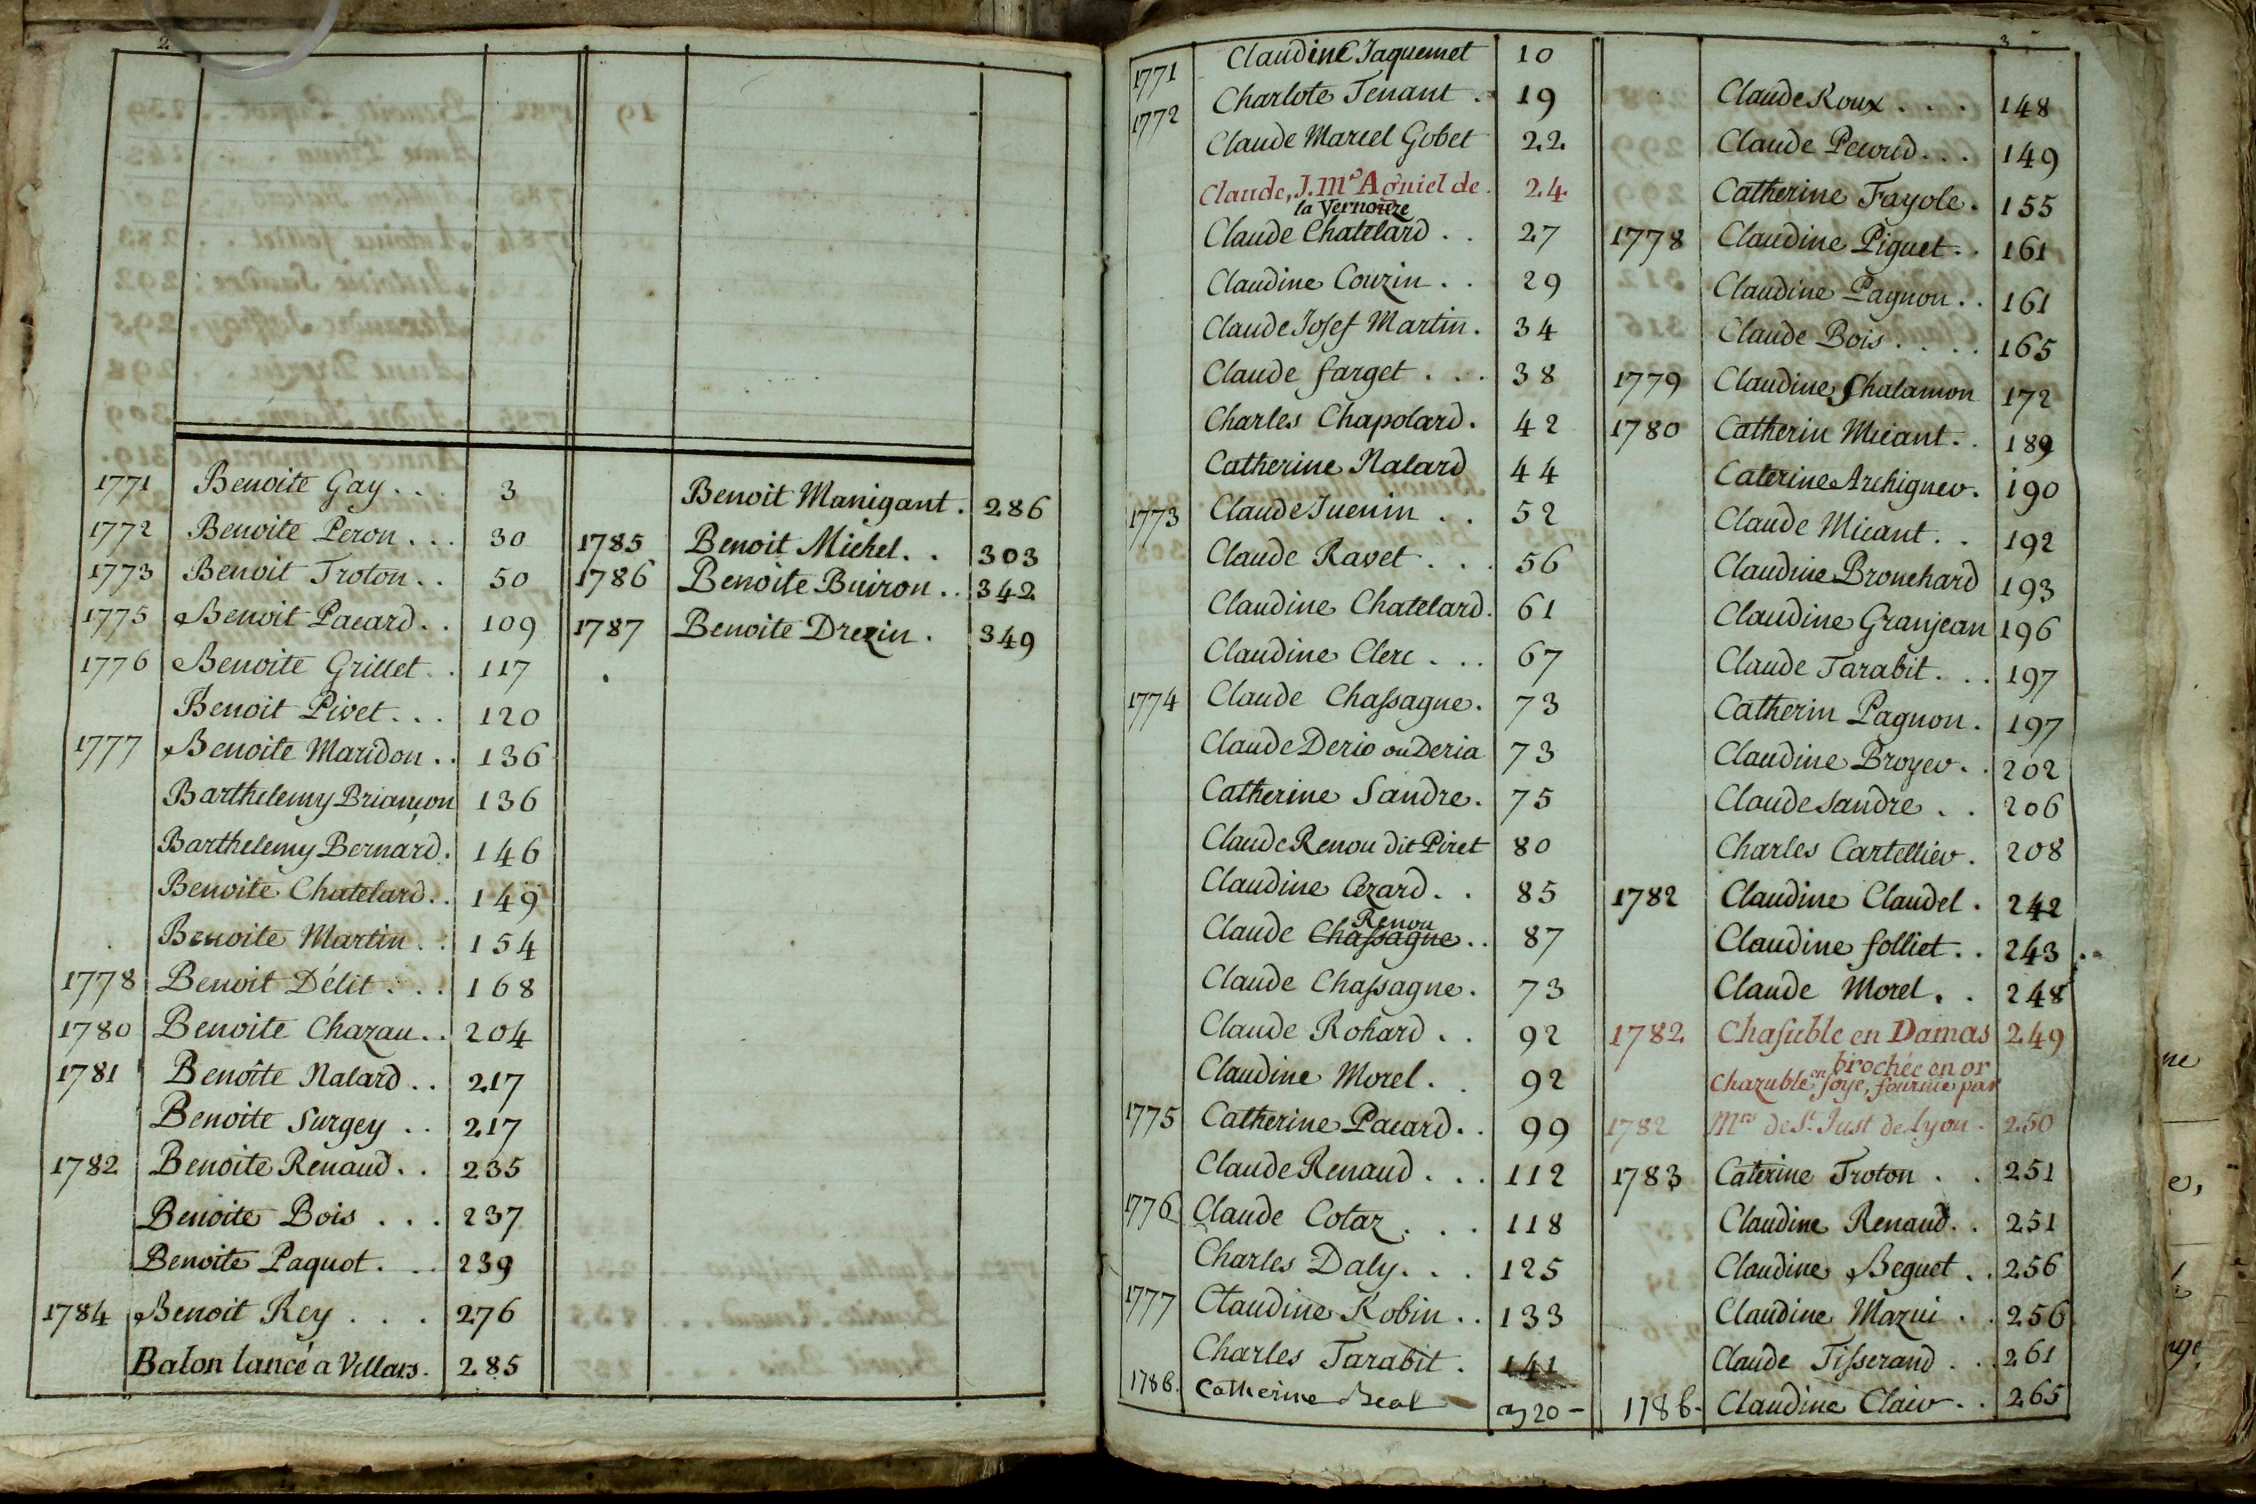 2
1771 Benoite Gay . . . 3
1772 Benoite Peron . . . 30
1773 Benoit Troton . . 50
1775 Benoit Pacard . . 109
1776 Benoite Grillet . . 117
Benoit Pivet . . . 120
1777 Benoite Maridon . . 136
Barthelemy Briançon 136
Barthelemy Bernard . 146
Benoite Chatelard . . 149
Benoite Martin . . 154
1778 Benoit Délit . . . 168
1780 Benoite Chazau . . 204
1781 Benoite Nalard . . 217
Benoite Surgey . . 217
1782 Benoite Renaud . . 235
Benoite Bois . . . 237
Benoite Paquot . . . 239
1784 Benoit Rey . . . 276
Balon lancé a Villars . 285
Benoit Manigant . 286
1785 Benoit Michel . . 303
1786 Benoite Buiron . . 342
1787 Benoite Drezin . 349
3
1771 Claudine Jaquemet 10
1772 Charlote Tenant . 19
Claude Marcel Gobet 22
Claude, J. Mie Agniel de . 24
la Vernouze
Claude Chatelard . . 27
Claudine Couzin . . 29
Claude Josef Martin . 34
Claude farget . . . 38
Charles Chapolard . 42
Catherine Nalard 44
1773 Claude Juenin . . 52
Claude Ravet . . . 56
Claudine Chatelard . 61
Claudine Clerc . . . 67
1774 Claude Chassagne . 73
Claude Derio ou Deria 73
Catherine Sandre . 75
Claude Renou dit Piret 80
Claudine Cezard . . 85
Renou
Claude Chassagne . . 87
Claude Chassagne . 73
Claude Rohard . . 92
Claudine Morel . . 92
1775 Catherine Pacard . . 99
Claude Renaud . . . 112
1776 Claude Cotaz . . . 118
Charles Daly . . . 125
1777 Claudine Robin . . 133
Charles Tarabit . 141
1786. Catherine Beal 320 -
Claude Roux . . . . 148
Claude Pecoud . . . 149
Catherine Fayole . 155
1778 Claudine Piquet . . 161
Claudine Pagnon . . 161
Claude Bois . . . . 165
1779 Claudine Chalamon 172
1780 Catherin Micant . . 189
Caterine Archigner . 190
Claude Micant . . 192
Claudine Brouchard 193
Claudine Granjean 196
Claude Tarabit . . . 197
Catherin Pagnon . 197
Claudine Broyer . . 202
Claude Sandre . . 206
Charles Cartellier . 208
1782 Claudine Claudel . 242
Claudine folliet . . 243
Claude Morel . . 248
1782 Chasuble en Damas 249
brochée en or
Chazuble en soye, fournie par
1782 Mrs de St. Just de Lyon . 250
1783 Caterine Troton . . 251
Claudine Renaud . . 251
Claudine Beguet . . 256
Claudine Mazui . . 256
Claude Tisserand . . . 261
1786. Claudine Clair . . 265